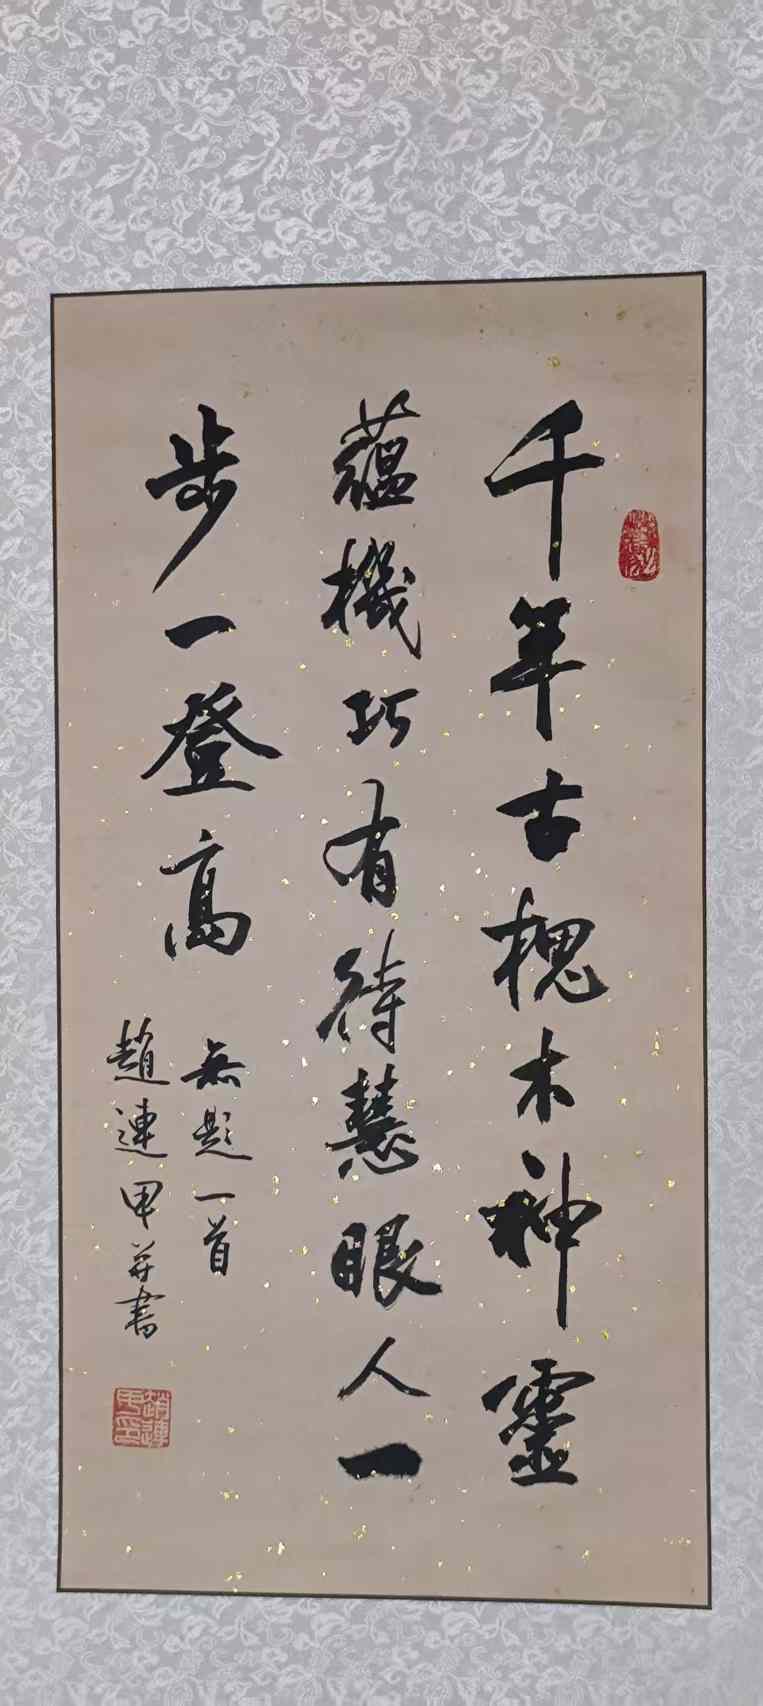 千年古槐木神靈
蘊機巧有待慧眼人一
步一登高
無題一首
趙連甲并書
趙連甲印